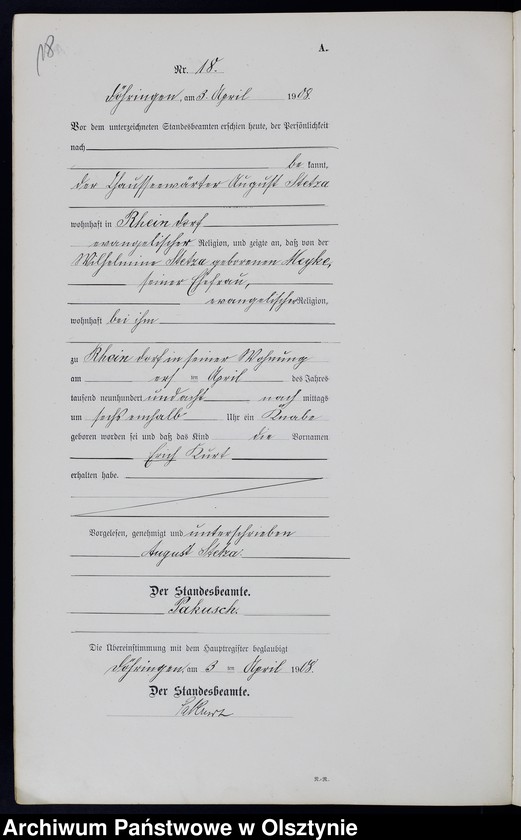 18
A.
Nr. 18.
Döhringen, am 3. April 1908.
Vor dem unterzeichneten Standesbeamten erschien heute, der Persönlichkeit
nach
be kannt,
der Chausseewärter August Stetza
wohnhaft in Rhein dorf
evangelischer Religion, und zeigte an, daß von der
Wilhelmine Stetza geborenen Heyke,
seiner Ehefrau,
evangelischer Religion,
wohnhaft bei ihm
zu Rhein dorf in seiner Wohnung
am ersten April des Jahres
tausend neunhundert undacht nach mittags
um sechs einhalb Uhr ein Knabe
geboren worden sei und daß das Kind die Vornamen
Erich Kurt
erhalten habe.
Vorgelesen, genehmigt und unterschrieben
August Stetza.
Der Standesbeamte.
Pakusch.
Die Übereinstimmung mit dem Hauptregister beglaubigt
Döhringen, am 3 ten April 1908.
Der Standesbeamte.
Archiwum Państwowe w Olsztynie